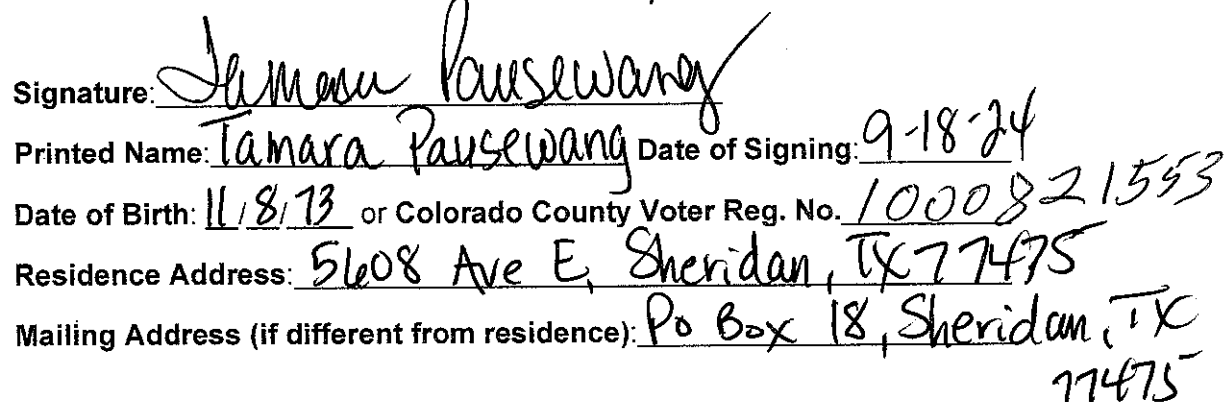 Signature: Tamara Pausewang
Printed Name: Tamara Pausewang Date of Signing: 9-18-24
Date of Birth: 11/8/73 or Colorado County Voter Reg. No. 1000821553
Residence Address: 5608 Ave E, Sheridan, TX 77475
Mailing Address (if different from residence): Po Box 18, Sheridan, TX
77475